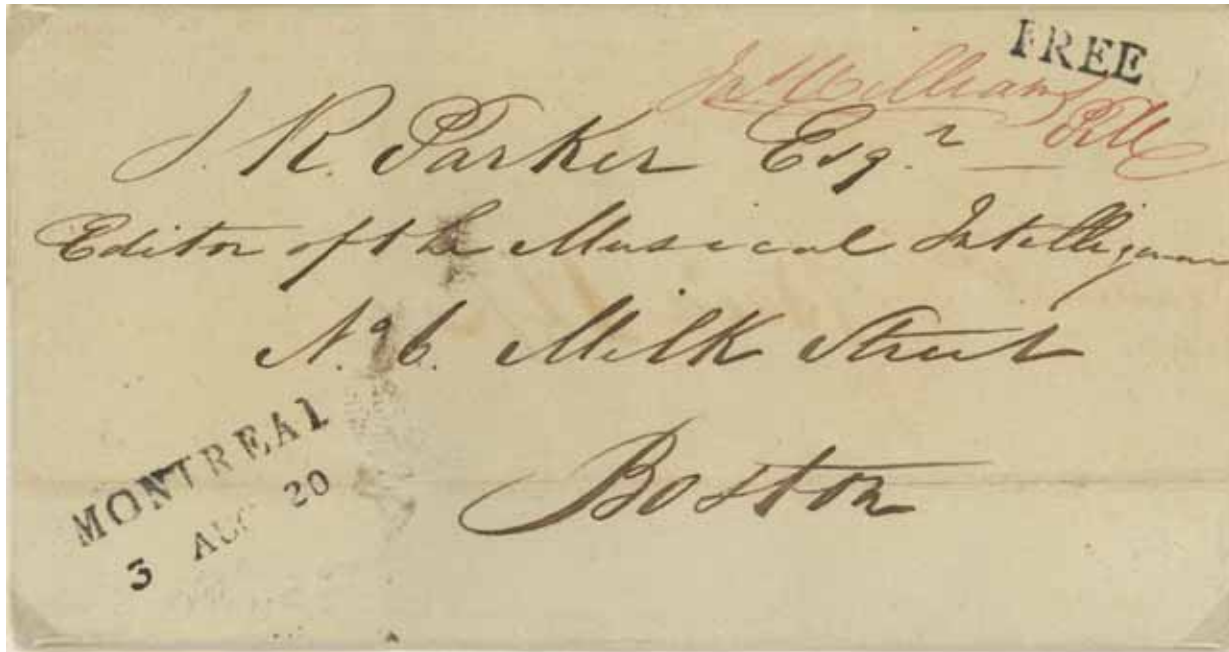 FREE
Jn. Williams
P.M
J. R. Parker Esqr
Editor of the Musical Intelligencer
No. 6. Milk Street
Boston
MONTREAL
3 AUG 20